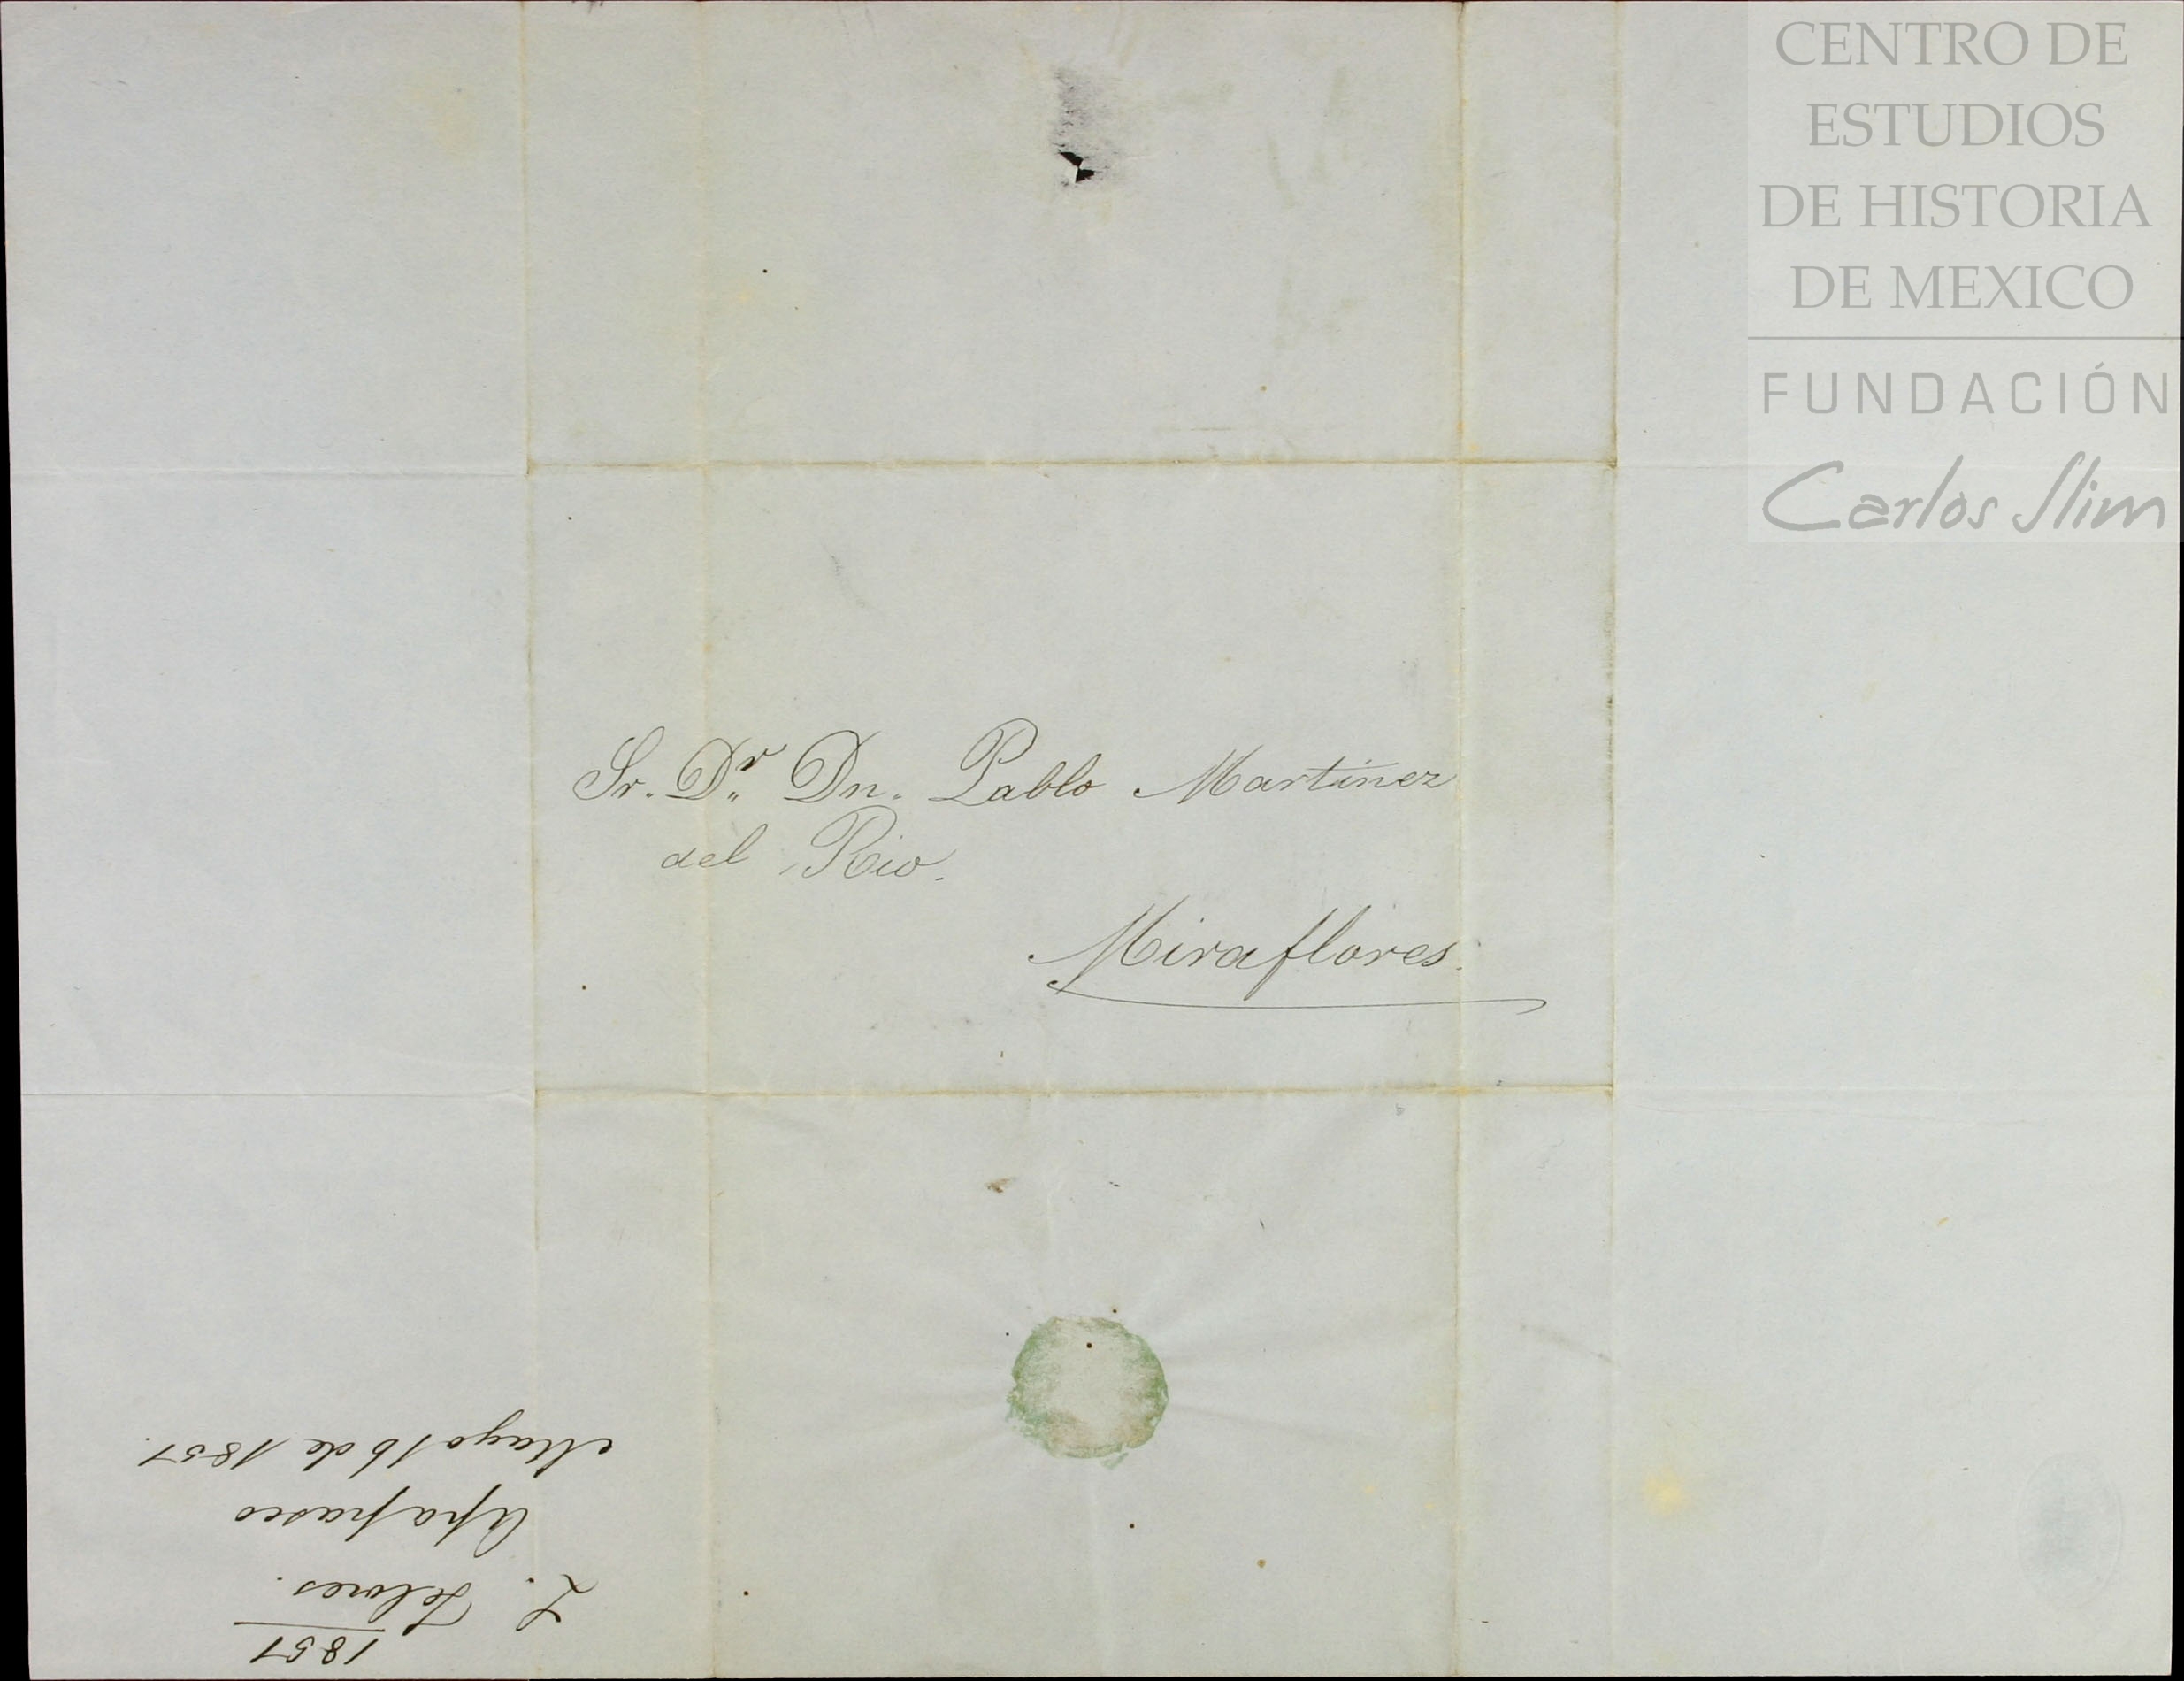 CENTRO DE
ESTUDIOS
DE HISTORIA
DE MEXICO
FUNDACIÓN
Carlos Slim
Sr. Dr. Dn. Pablo Martinez
del Rio.
Miraflores.
1851
L.
Apapasco
Mayo 16 de 1851.